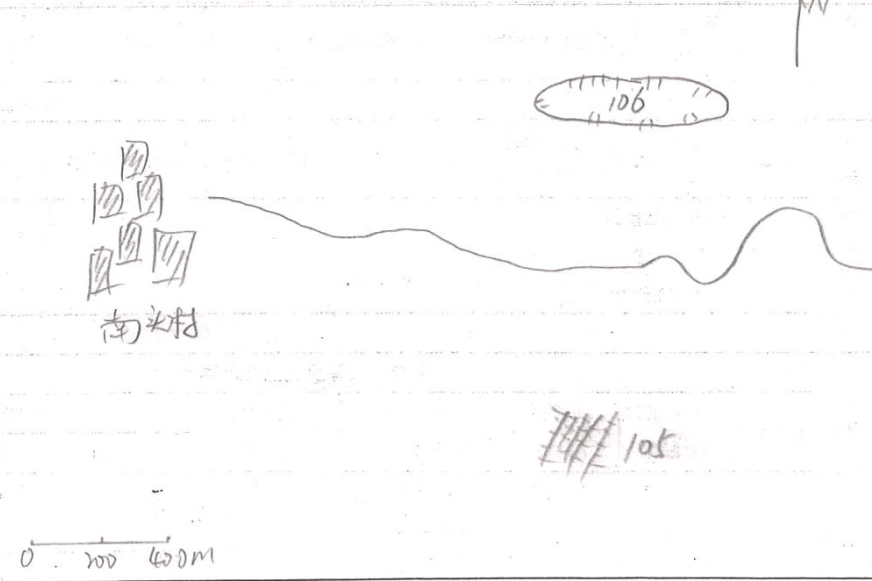 N
106
南头村
105
0 200 400m